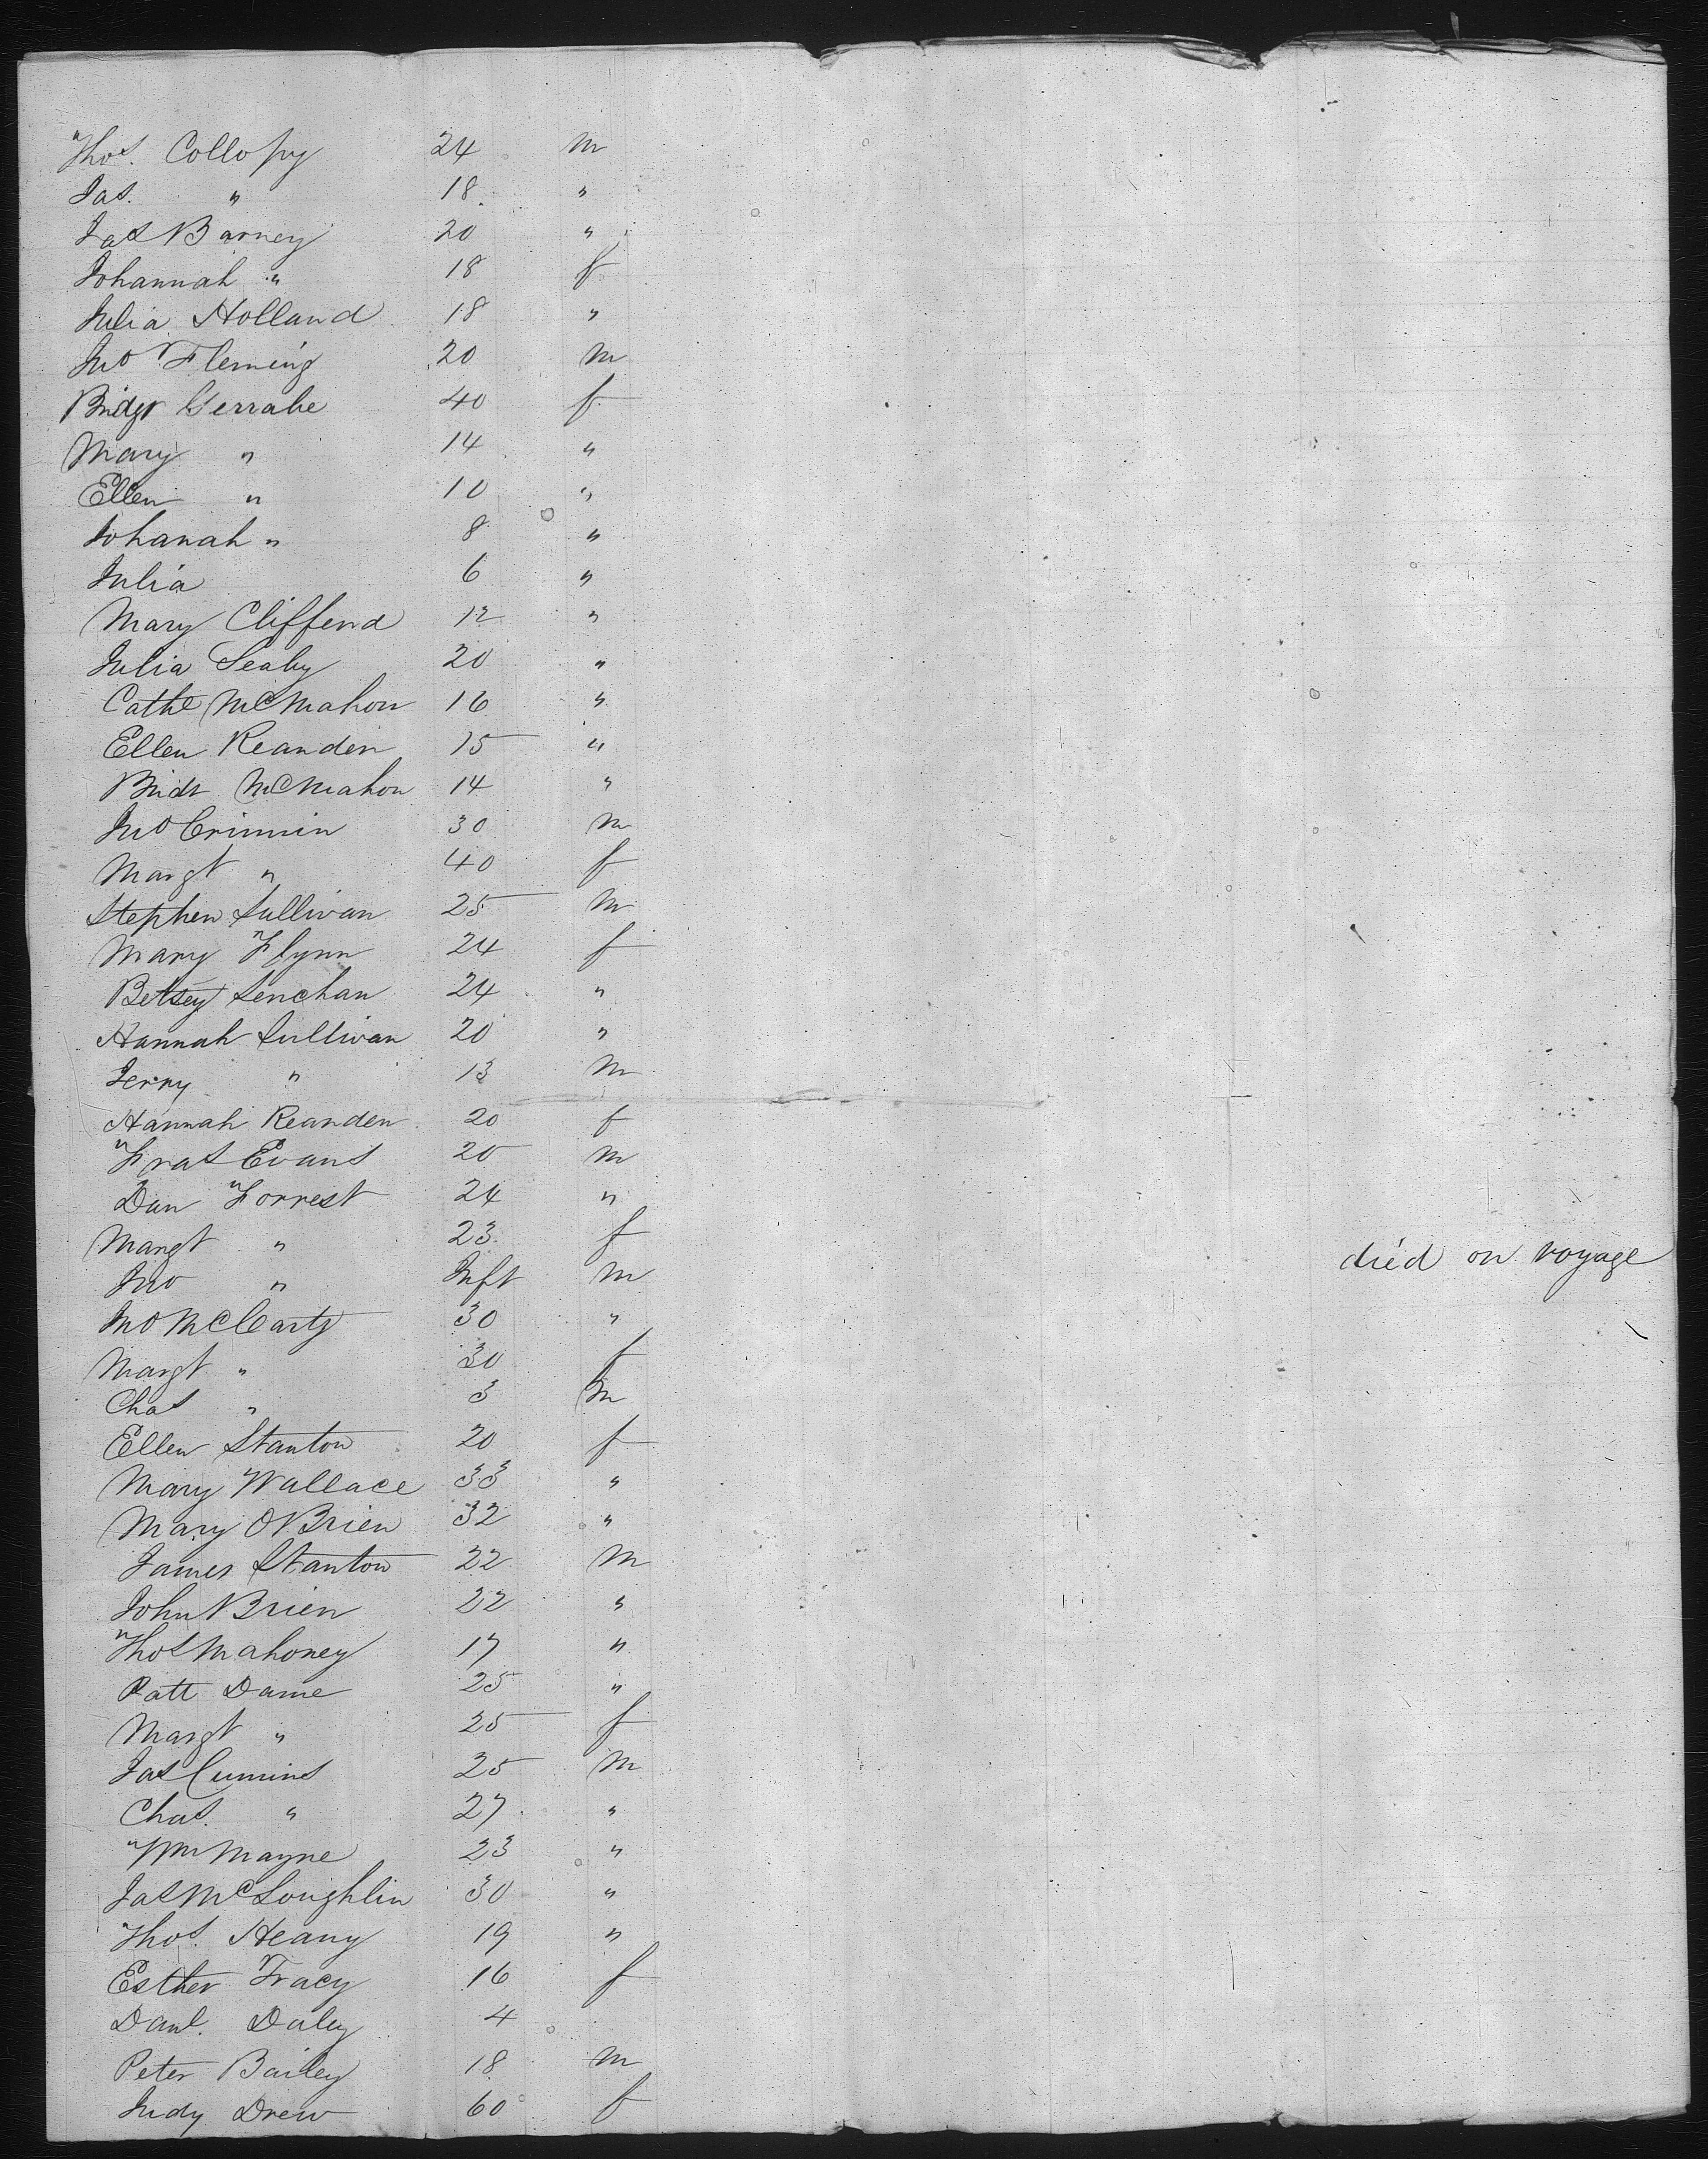 Thos. Collopy 24 m
Jas. " 18 "
Jas Barney 20 "
Johannah " 18 f
Julia Holland 18 "
Jno Fleming 20 m
Bridgt Gerrahe 40 f
Mary " 14 "
Ellen " 10 "
Johanah " 8 "
Julia 6 "
Mary Clifferd 12 "
Julia Leahy 20 "
Cathe McMahon 16 "
Ellen Rearden 15 "
Bridt McMahon 14 "
Jno Crimmin 30 m
Margt " 40 f
Stephen Sullivan 25 m
Mary Flynn 24 f
Betsey Lenehan 24 "
Hannah Sullivan 20 "
Jerry " 13 m
Hannah Rearden 20 f
Fras Evans 20 m
Dan Forrest 24 "
Margt " 23 f
Jno " Inft m died on voyage
Jno McCarty 30 "
Margt " 30 f
Chas " 3 m
Ellen Stanton 20 f
Mary Wallace 33 "
Mary OBrien 32 "
James Stanton 22 m
John Brien 22 "
Thos Mahoney 17 "
Patt Dame 25 "
Margt " 25 f
Jas Cumins 25 m
Chas. " 27 "
Wm Mayne 23 "
Jas McLoughlin 30 "
Thos. Heany 19 "
Esther Tracy 16 f
Danl. Daley 4
Peter Bailey 18 m
Judy Drew 60 f